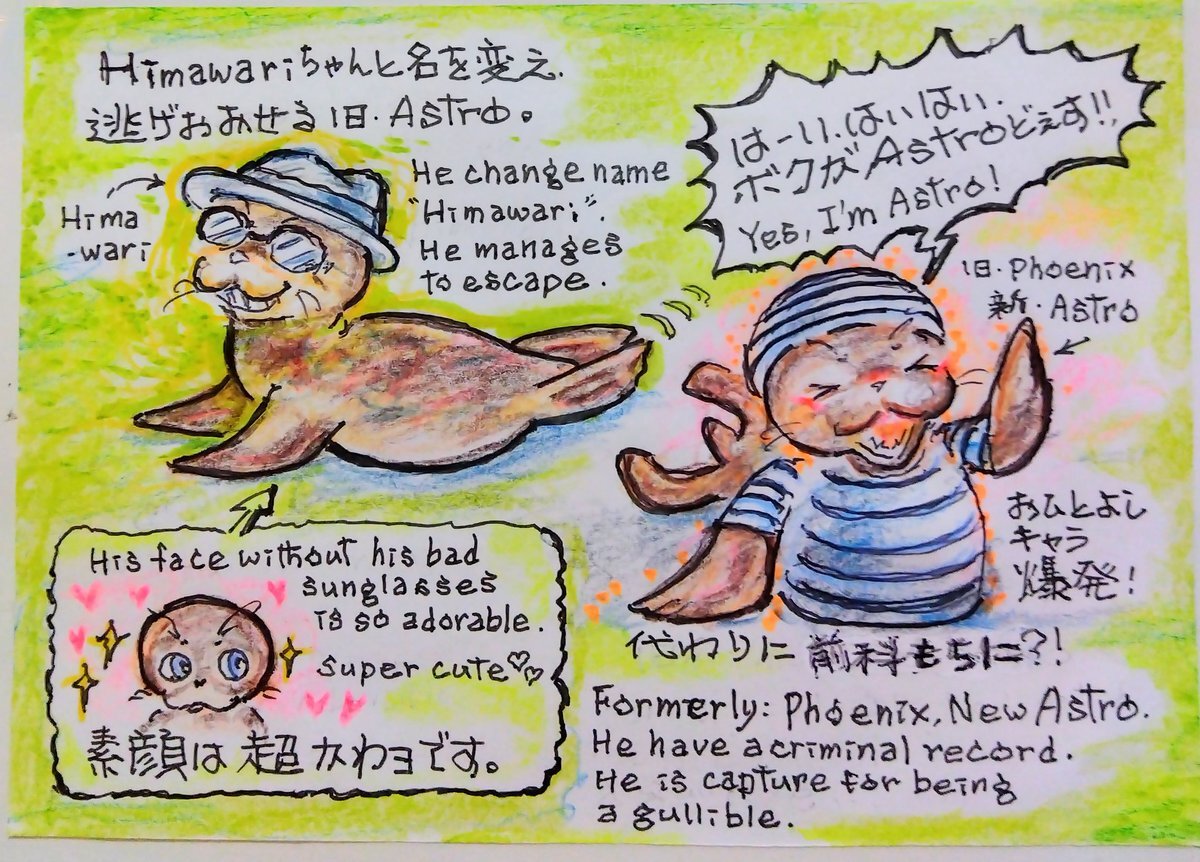 Himawariちゃんと名を変え、
逃げおおせる旧・Astro。
Hima
-wari
He change name
"Himawari".
He manages
to escape.
はーい、はいはい、
ボクがAstroどぇす!!
Yes, I'm Astro!
旧・Phoenix
新・Astro
おひとよし
キャラ
爆発!
代わりに前科もちに?!
Formerly: Phoenix, New Astro.
He have a criminal record.
He is capture for being
a gullible.
His face without his bad
sunglasses
is so adorable.
super cute♡♡
素顔は超カワヨです。